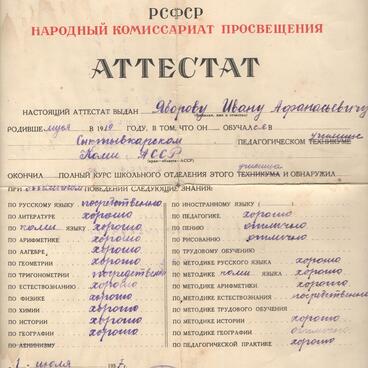 РСФСР
НАРОДНЫЙ КОМИССАРИАТ ПРОСВЕЩЕНИЯ
АТТЕСТАТ
НАСТОЯЩИЙ АТТЕСТАТ ВЫДАН Яворову Ивану Афанасьевичу
РОДИВШЕМУСЯ В 1919 ГОДУ, В ТОМ, ЧТО ОН ОБУЧАЛСЯ В
Сыктывкарском ПЕДАГОГИЧЕСКОМ ТЕХНИКУМЕ училище
Коми АССР
ОКОНЧИЛ ПОЛНЫЙ КУРС ШКОЛЬНОГО ОТДЕЛЕНИЯ ЭТОГО ТЕХНИКУМА училища И ОБНАРУЖИЛ
ПРИ отличном ПОВЕДЕНИИ СЛЕДУЮЩИЕ ЗНАНИЯ:
ПО РУССКОМУ ЯЗЫКУ посредственно
ПО ЛИТЕРАТУРЕ хорошо
ПО коми ЯЗЫКУ хорошо
ПО АРИФМЕТИКЕ хорошо
ПО АЛГЕБРЕ хорошо
ПО ГЕОМЕТРИИ хорошо
ПО ТРИГОНОМЕТРИИ посредственно
ПО ЕСТЕСТВОЗНАНИЮ хорошо
ПО ФИЗИКЕ хорошо
ПО ХИМИИ хорошо
ПО ИСТОРИИ хорошо
ПО ГЕОГРАФИИ хорошо
ПО ЛЕНИНИЗМУ
ПО ИНОСТРАННОМУ ЯЗЫКУ ( )
ПО ПЕДАГОГИКЕ хорошо
ПО ПЕНИЮ отлично
ПО РИСОВАНИЮ отлично
ПО ТРУДОВОМУ ОБУЧЕНИЮ
ПО МЕТОДИКЕ РУССКОГО ЯЗЫКА хорошо
ПО МЕТОДИКЕ коми ЯЗЫКА хорошо
ПО МЕТОДИКЕ АРИФМЕТИКИ хорошо
ПО МЕТОДИКЕ ЕСТЕСТВОЗНАНИЯ посредственно
ПО МЕТОДИКЕ ТРУДОВОГО ОБУЧЕНИЯ
ПО МЕТОДИКЕ ИСТОРИИ хорошо
ПО МЕТОДИКЕ ГЕОГРАФИИ отлично
ПО ПЕДАГОГИЧЕСКОЙ ПРАКТИКЕ хорошо
1 июля